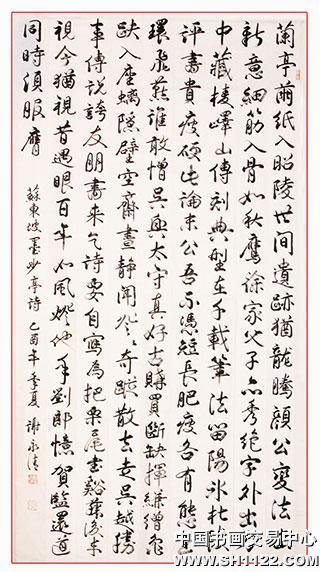 蘭亭繭紙入昭陵世間遺跡猶龍騰顏公變法出
新意細筋入骨如秋鷹徐家父子亦秀絕字外出力
中藏棱嶧山傳刻典型在千載筆法留陽冰杜陵
評書貴瘦硬此論未公吾不憑短長肥瘦各有態玉
環飛燕誰敢憎吳興太守真好古購買斷缺揮縑繒龜
趺入座螭隱壁空齋晝靜聞登登奇蹤散出走吳越勝
事傳說誇友朋書來乞詩要自寫為把栗尾書谿藤後來
視今猶視昔過眼百年如風燈他年劉郎憶賀監還道
同時須服膺
蘇東坡墨妙亭詩 乙酉年季夏 謝永清
中国书画交易中心
www.sh1122.com